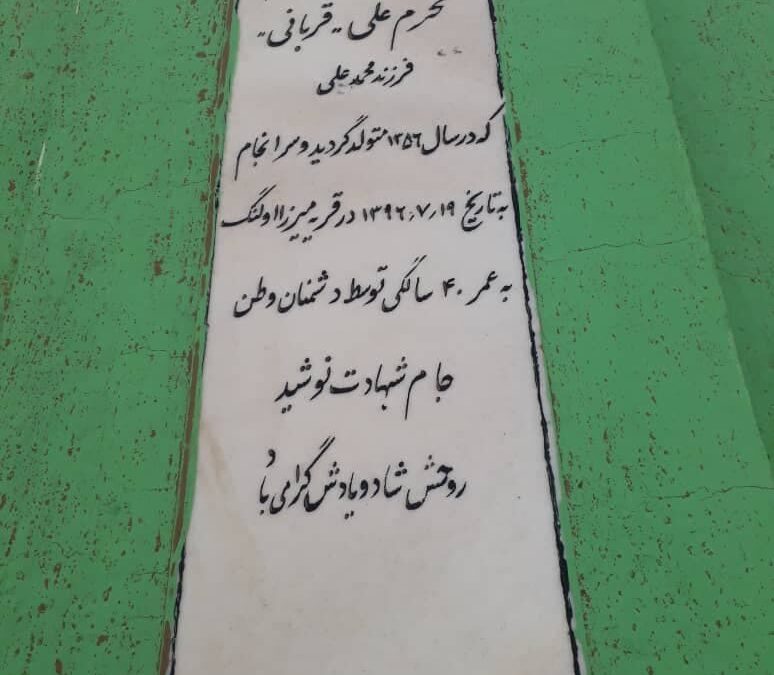 محرم علی "قربانی"
فرزند محمد علی
که در سال ۱۳۵۶ متولد گردید و سرانجام
به تاریخ ۱۳۹۶٫۷٫۱۹ در قریه میرزا اولنگ
به عمر ۴۰ سالگی توسط دشمنان وطن
جام شهادت نوشید
روحش شاد و یادش گرامی باد